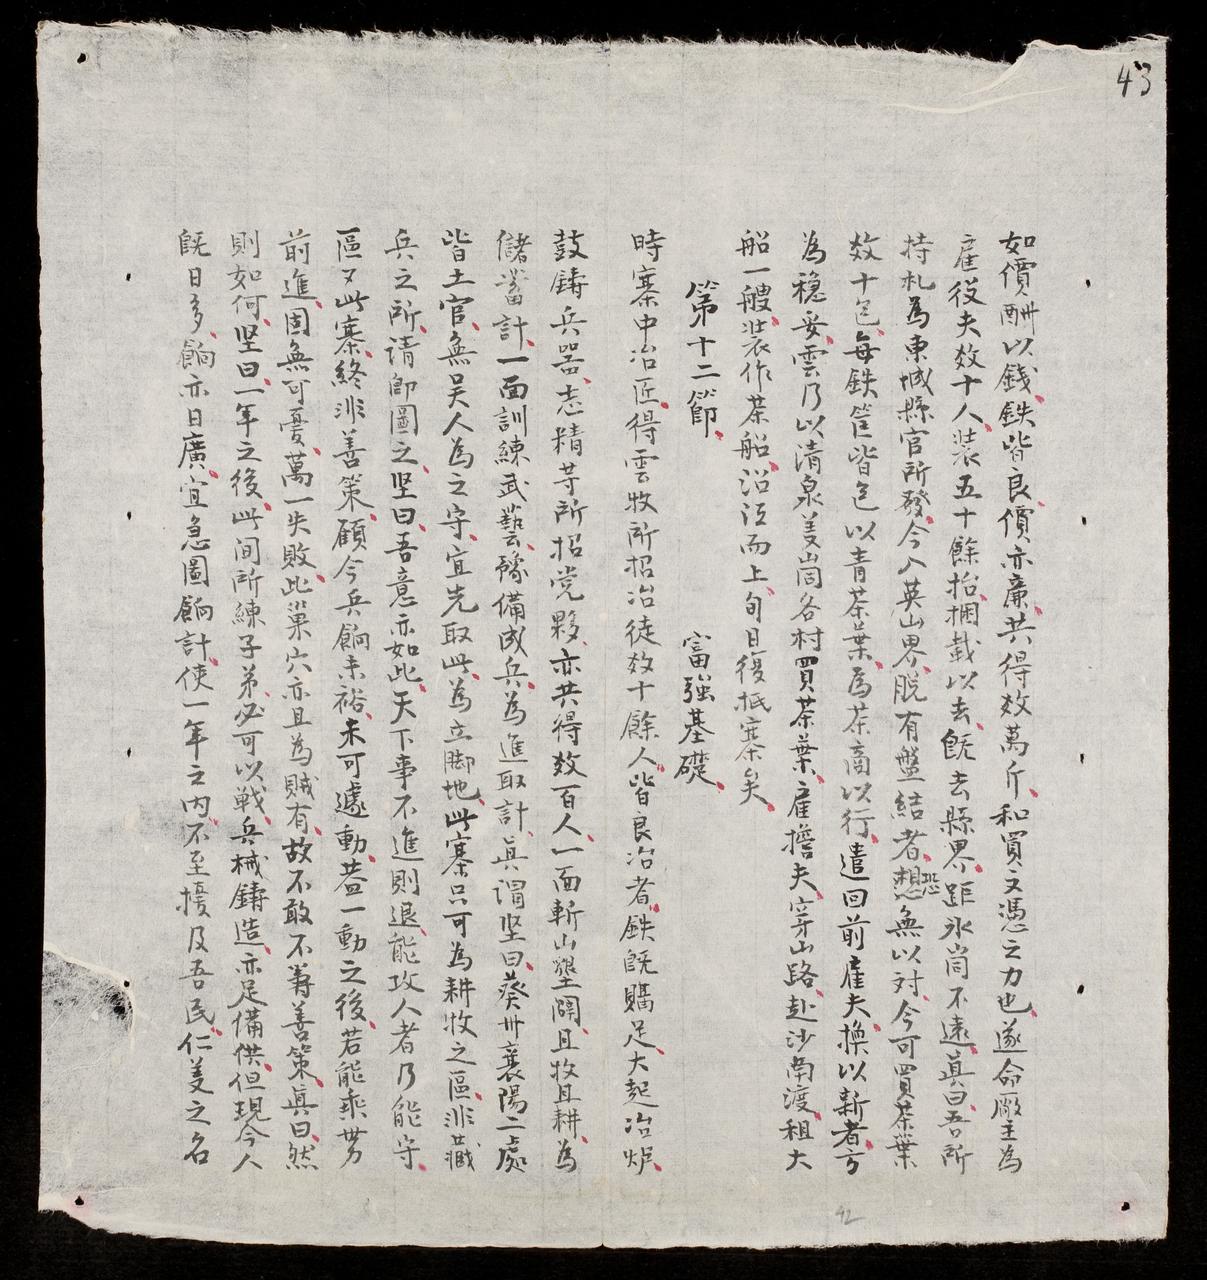 43
如價酬以錢鉄皆良價亦廉共得效萬斤和買文憑之力也遂命廠主為
雇役夫效十人装五十餘抬捆載以去既去縣界距氷崗不遠真曰吾所
持札為東城縣官所發今入英山界脱有盤結者想恐無以对今可買茶葉
效十包每鉄筐皆包以青茶葉為茶商以行遣回前雇夫換以新者方
為穩妥雲乃以清泉姜崗各村買茶葉雇擔夫穿山路赴沙南渡租大
船一艘装作茶船沿江而上旬日復抵寨矣
第十二節 富強基礎
時寨中冶匠得雲牧所招冶徒效十餘人皆良冶者鉄既購足大起冶炉
鼓鑄兵器志精等所招党夥亦共得效百人一面斬山墾闢且牧且耕為
儲蓄計一面訓練武藝豫備成兵為進取計真谓坚曰葵卅襄陽二處
皆土官無吴人為之守宜先取此為立脚地此寨只可為耕牧之區非藏
兵之所请卽圖之坚曰吾意亦如此天下事不進則退能攻人者乃能守
區〻此寨終非善策顧今兵餉未裕未可遽動蓋一動之後若能乘势
前進固無可憂萬一失敗此巢穴亦且為賊有故不敢不筹善策真曰然
則如何坚曰一年之後此间所練子弟必可以戦兵械鑄造亦足備供但現今人
既日多餉亦日廣宜急圖餉計使一年之内不至擾及吾民仁姜之名
42